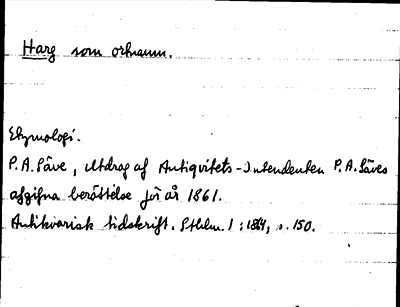 Harg som ortnamn.
Etymologi.
P. A. Säve, Utdrag af Antiqvitets-Intendenten P. A. Säves
afgifna berättelse för år 1861.
Antikvarisk tidskrift. Sthlm. 1 : 1864, s. 150.